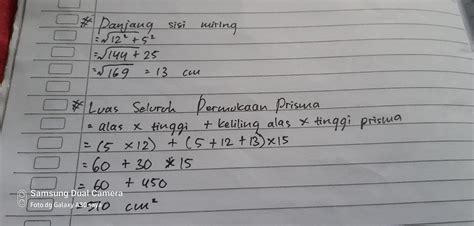 * Panjang sisi miring
= √12² + 5²
= √144 + 25
= √169 = 13 cm
* Luas Seluruh Permukaan Prisma
= alas x tinggi + keliling alas x tinggi prisma
= (5 x 12) + (5 + 12 + 13) x 15
= 60 + 30 x 15
= 60 + 450
= 510 cm²
Samsung Dual Camera
Foto dg Galaxy A30